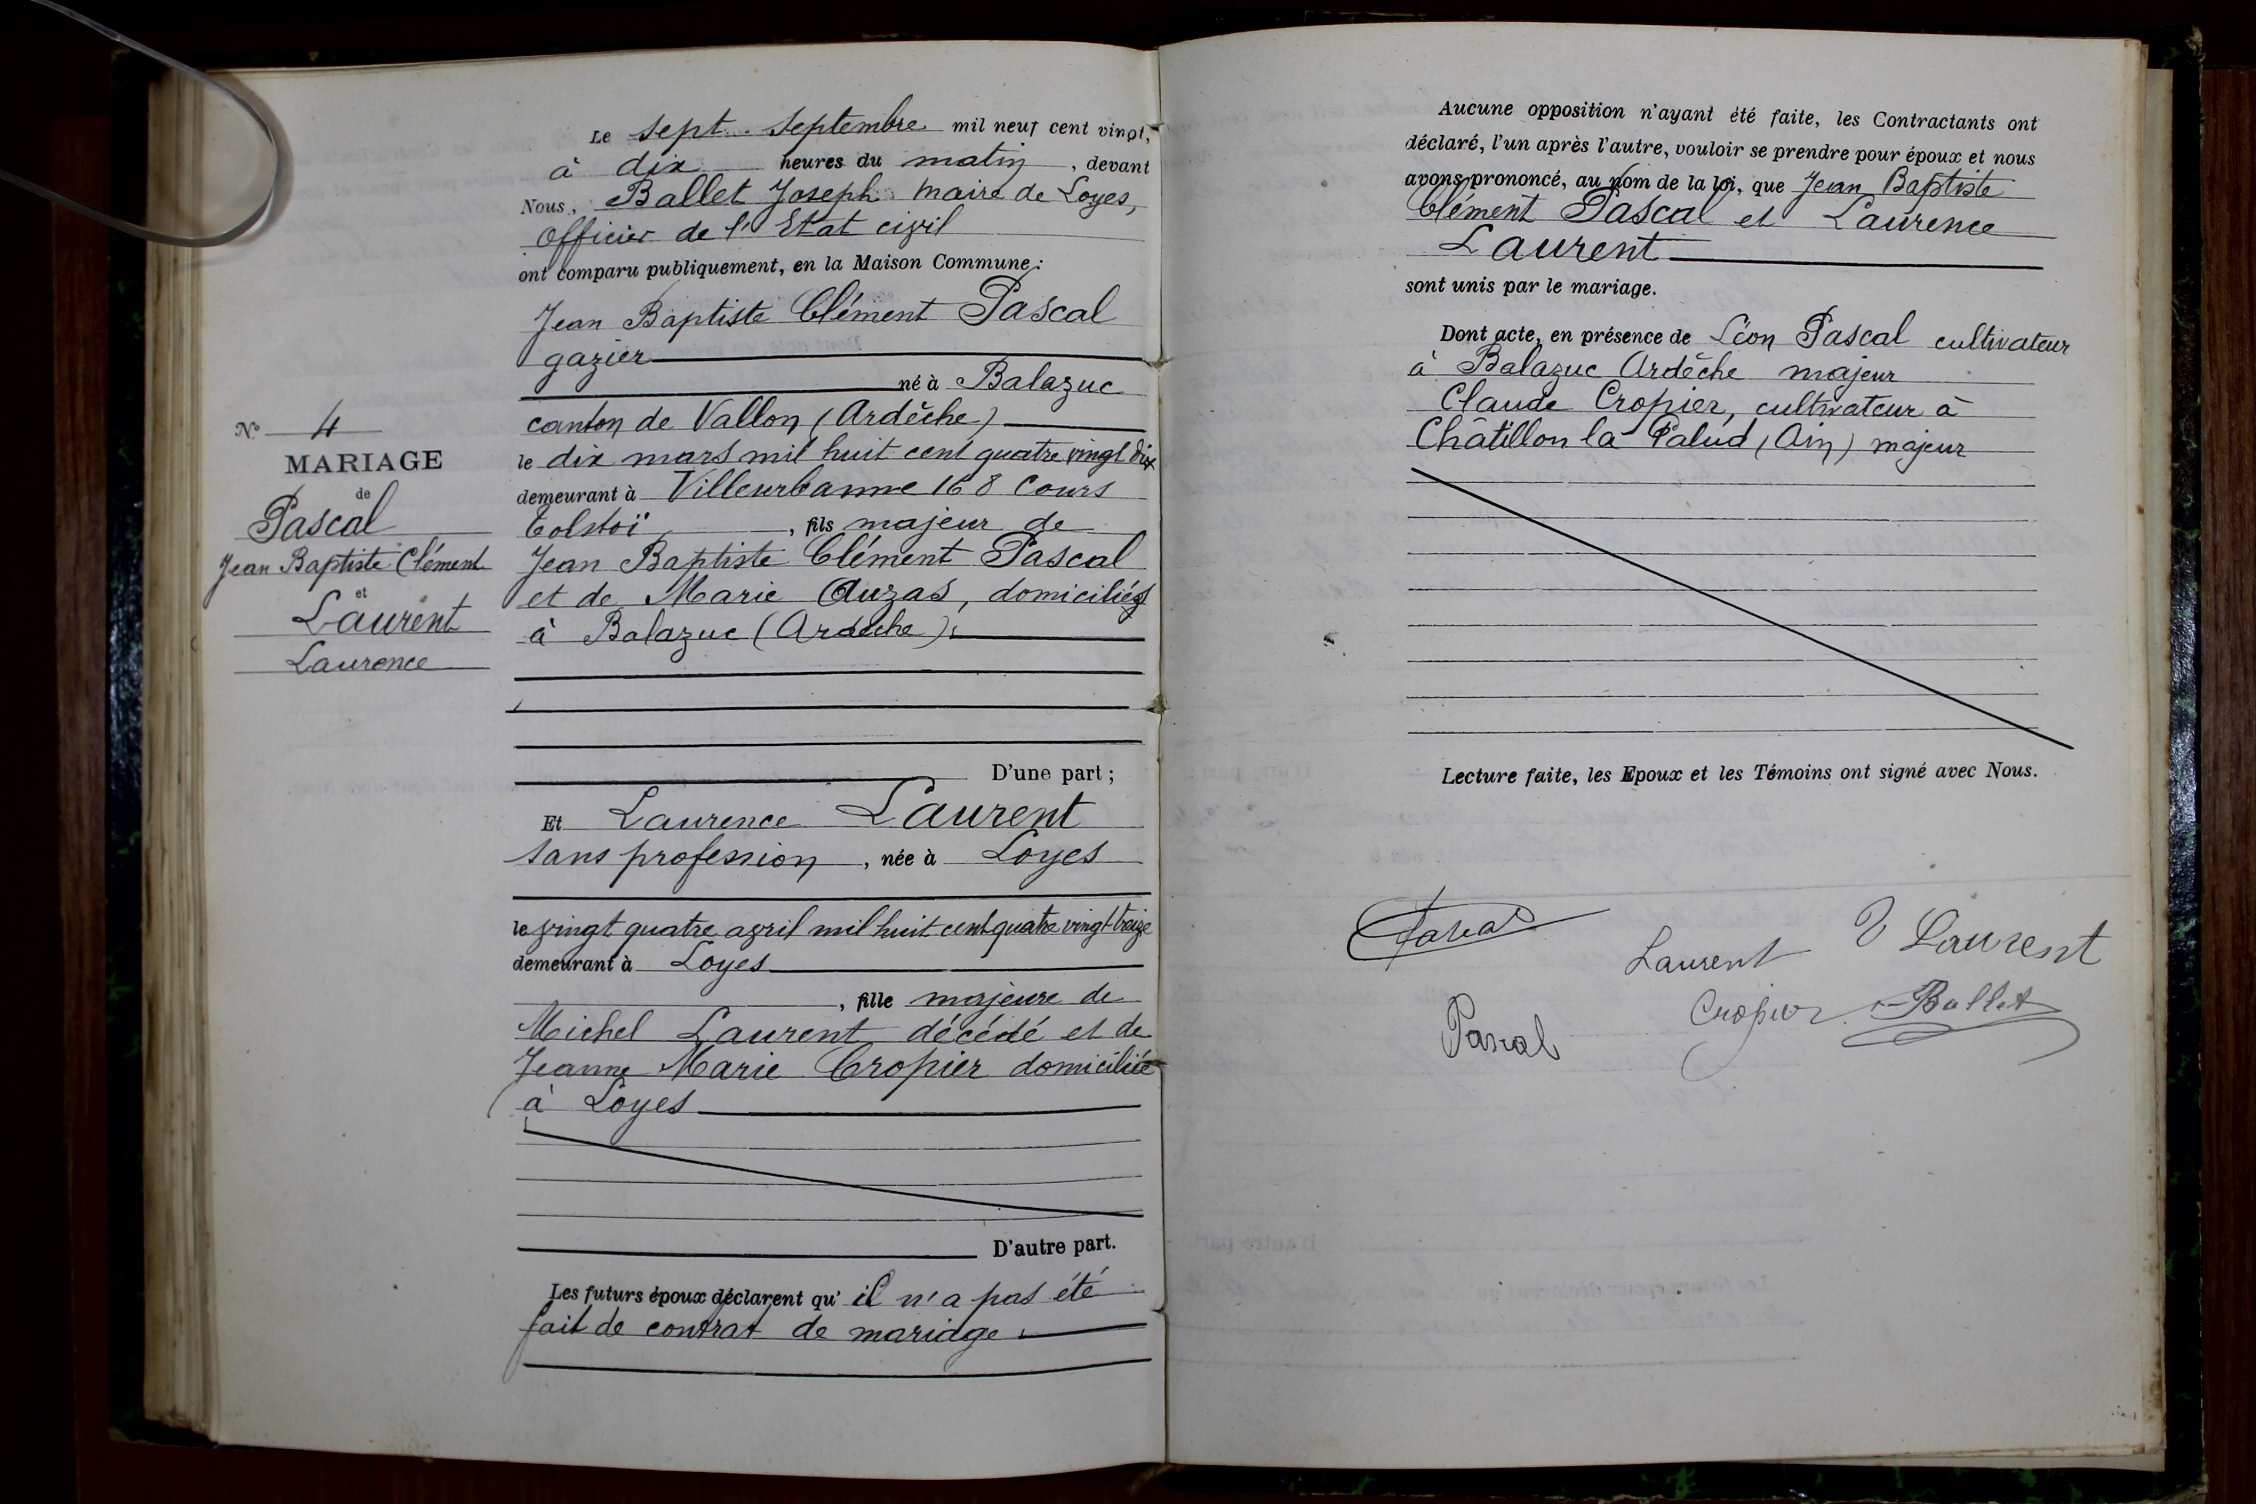 N° 4
MARIAGE
de
Pascal
Jean Baptiste Clément
et
Laurent
Laurence
Le sept septembre mil neuf cent vingt,
à dix heures du matin, devant
Nous, Ballet Joseph maire de Loyes,
officier de l'Etat civil
ont comparu publiquement, en la Maison Commune:
Jean Baptiste Clément Pascal
gazier
né à Balazuc
canton de Vallon (Ardèche)
le dix mars mil huit cent quatre vingt dix
demeurant à Villeurbanne 168 Cours
Tolstoï, fils majeur de
Jean Baptiste Clément Pascal
et de Marie Auzas, domiciliés
à Balazuc (Ardèche),
D'une part;
Et Laurence Laurent
sans profession, née à Loyes
le vingt quatre avril mil huit cent quatre vingt treize
demeurant à Loyes
, fille majeure de
Michel Laurent décédé et de
Jeanne Marie Cropier domiciliée
à Loyes
D'autre part.
Les futurs époux déclarent qu' il n'a pas été
fait de contrat de mariage.
Aucune opposition n'ayant été faite, les Contractants ont
déclaré, l'un après l'autre, vouloir se prendre pour époux et nous
avons prononcé, au nom de la loi, que Jean Baptiste
Clément Pascal et Laurence
Laurent
sont unis par le mariage.
Dont acte, en présence de Léon Pascal cultivateur
à Balazuc Ardèche majeur
Claude Cropier, cultivateur à
Châtillon la Palud (Ain) majeur
Lecture faite, les Epoux et les Témoins ont signé avec Nous.
Pascal
Laurent Laurent
Cropier Ballet
Pascal